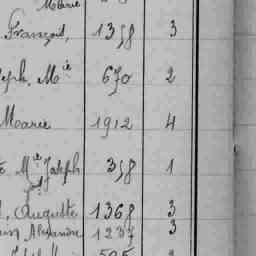 Marie
François, 1358 3
eph, M^ie 670 2
Marie 1912 4
M^ie Joseph 358 1
Auguste 1368 3
Alexandre 1237 3